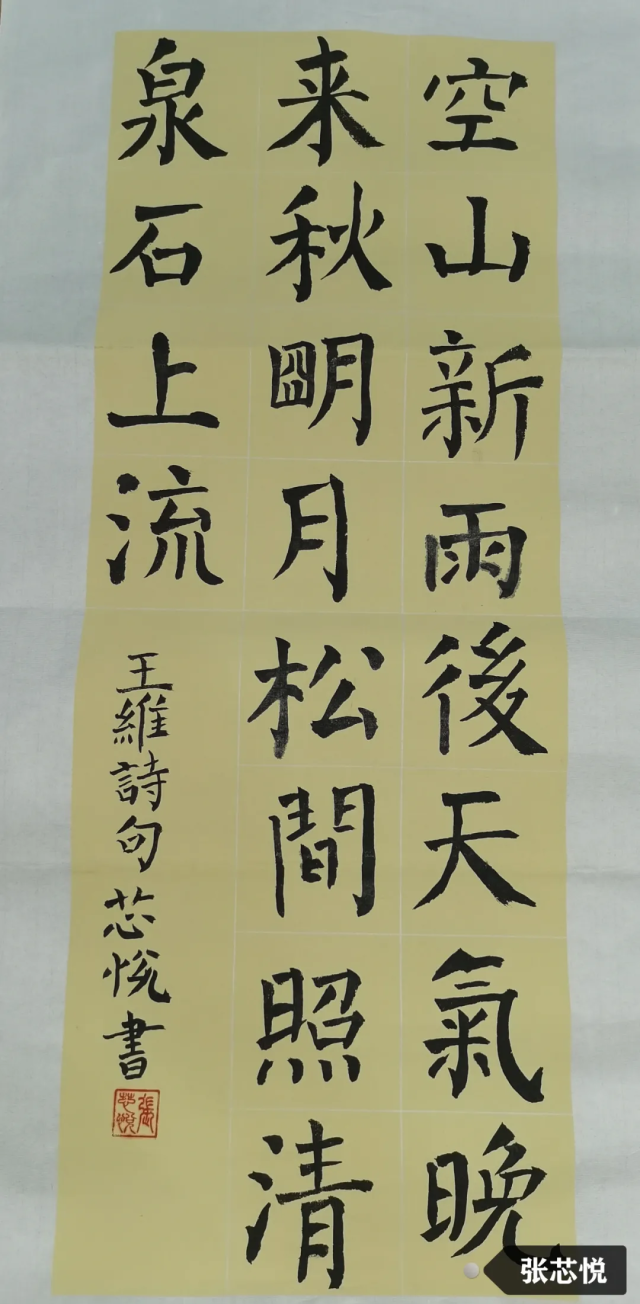 空山新雨後天氣晚
来秋明月松間照清
泉石上流
王維詩句芯悦書
張芯悦
张芯悦